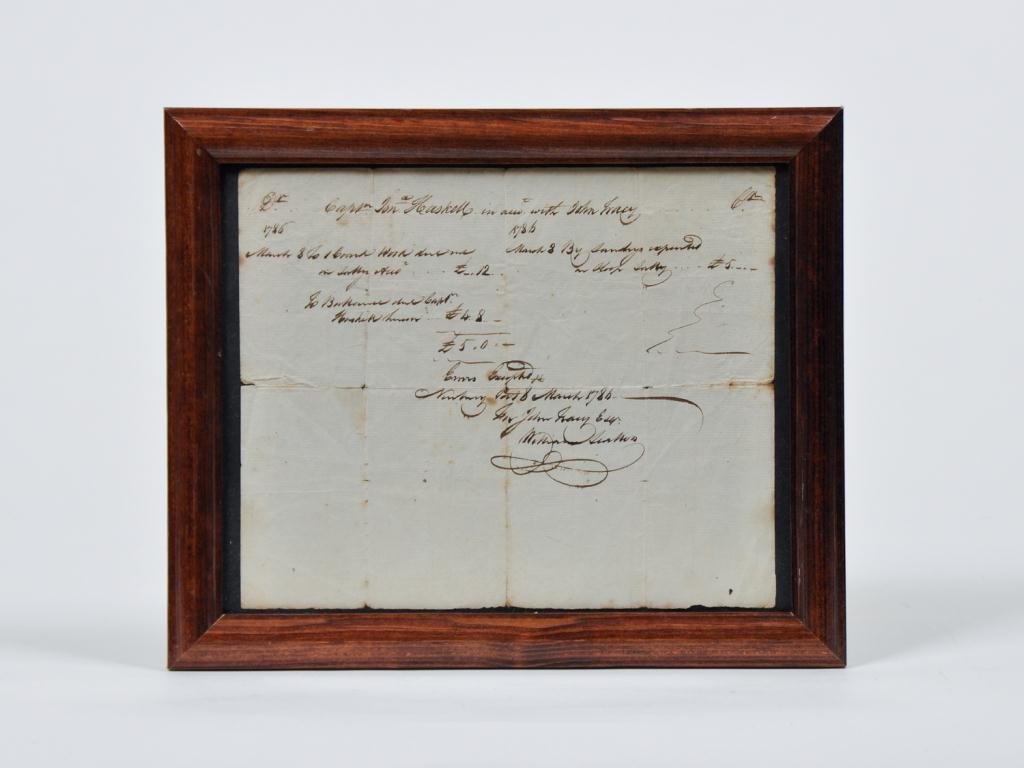 Dr. Captn. Jno. Haskell in acct. with John Tracy Cr.
1786
March 8 To 1 Count Work due me
on Acct £ .. 12 ..
To Ballance due Captn.
£ 4. 8 ..
£ 5. 0 ..
1786
March 8 By Sundrys expended
on Sloop Salley £ 5 ..
Errors Excepted
Newbury Port 8 March 1786
For John Tracy Esqr.
William